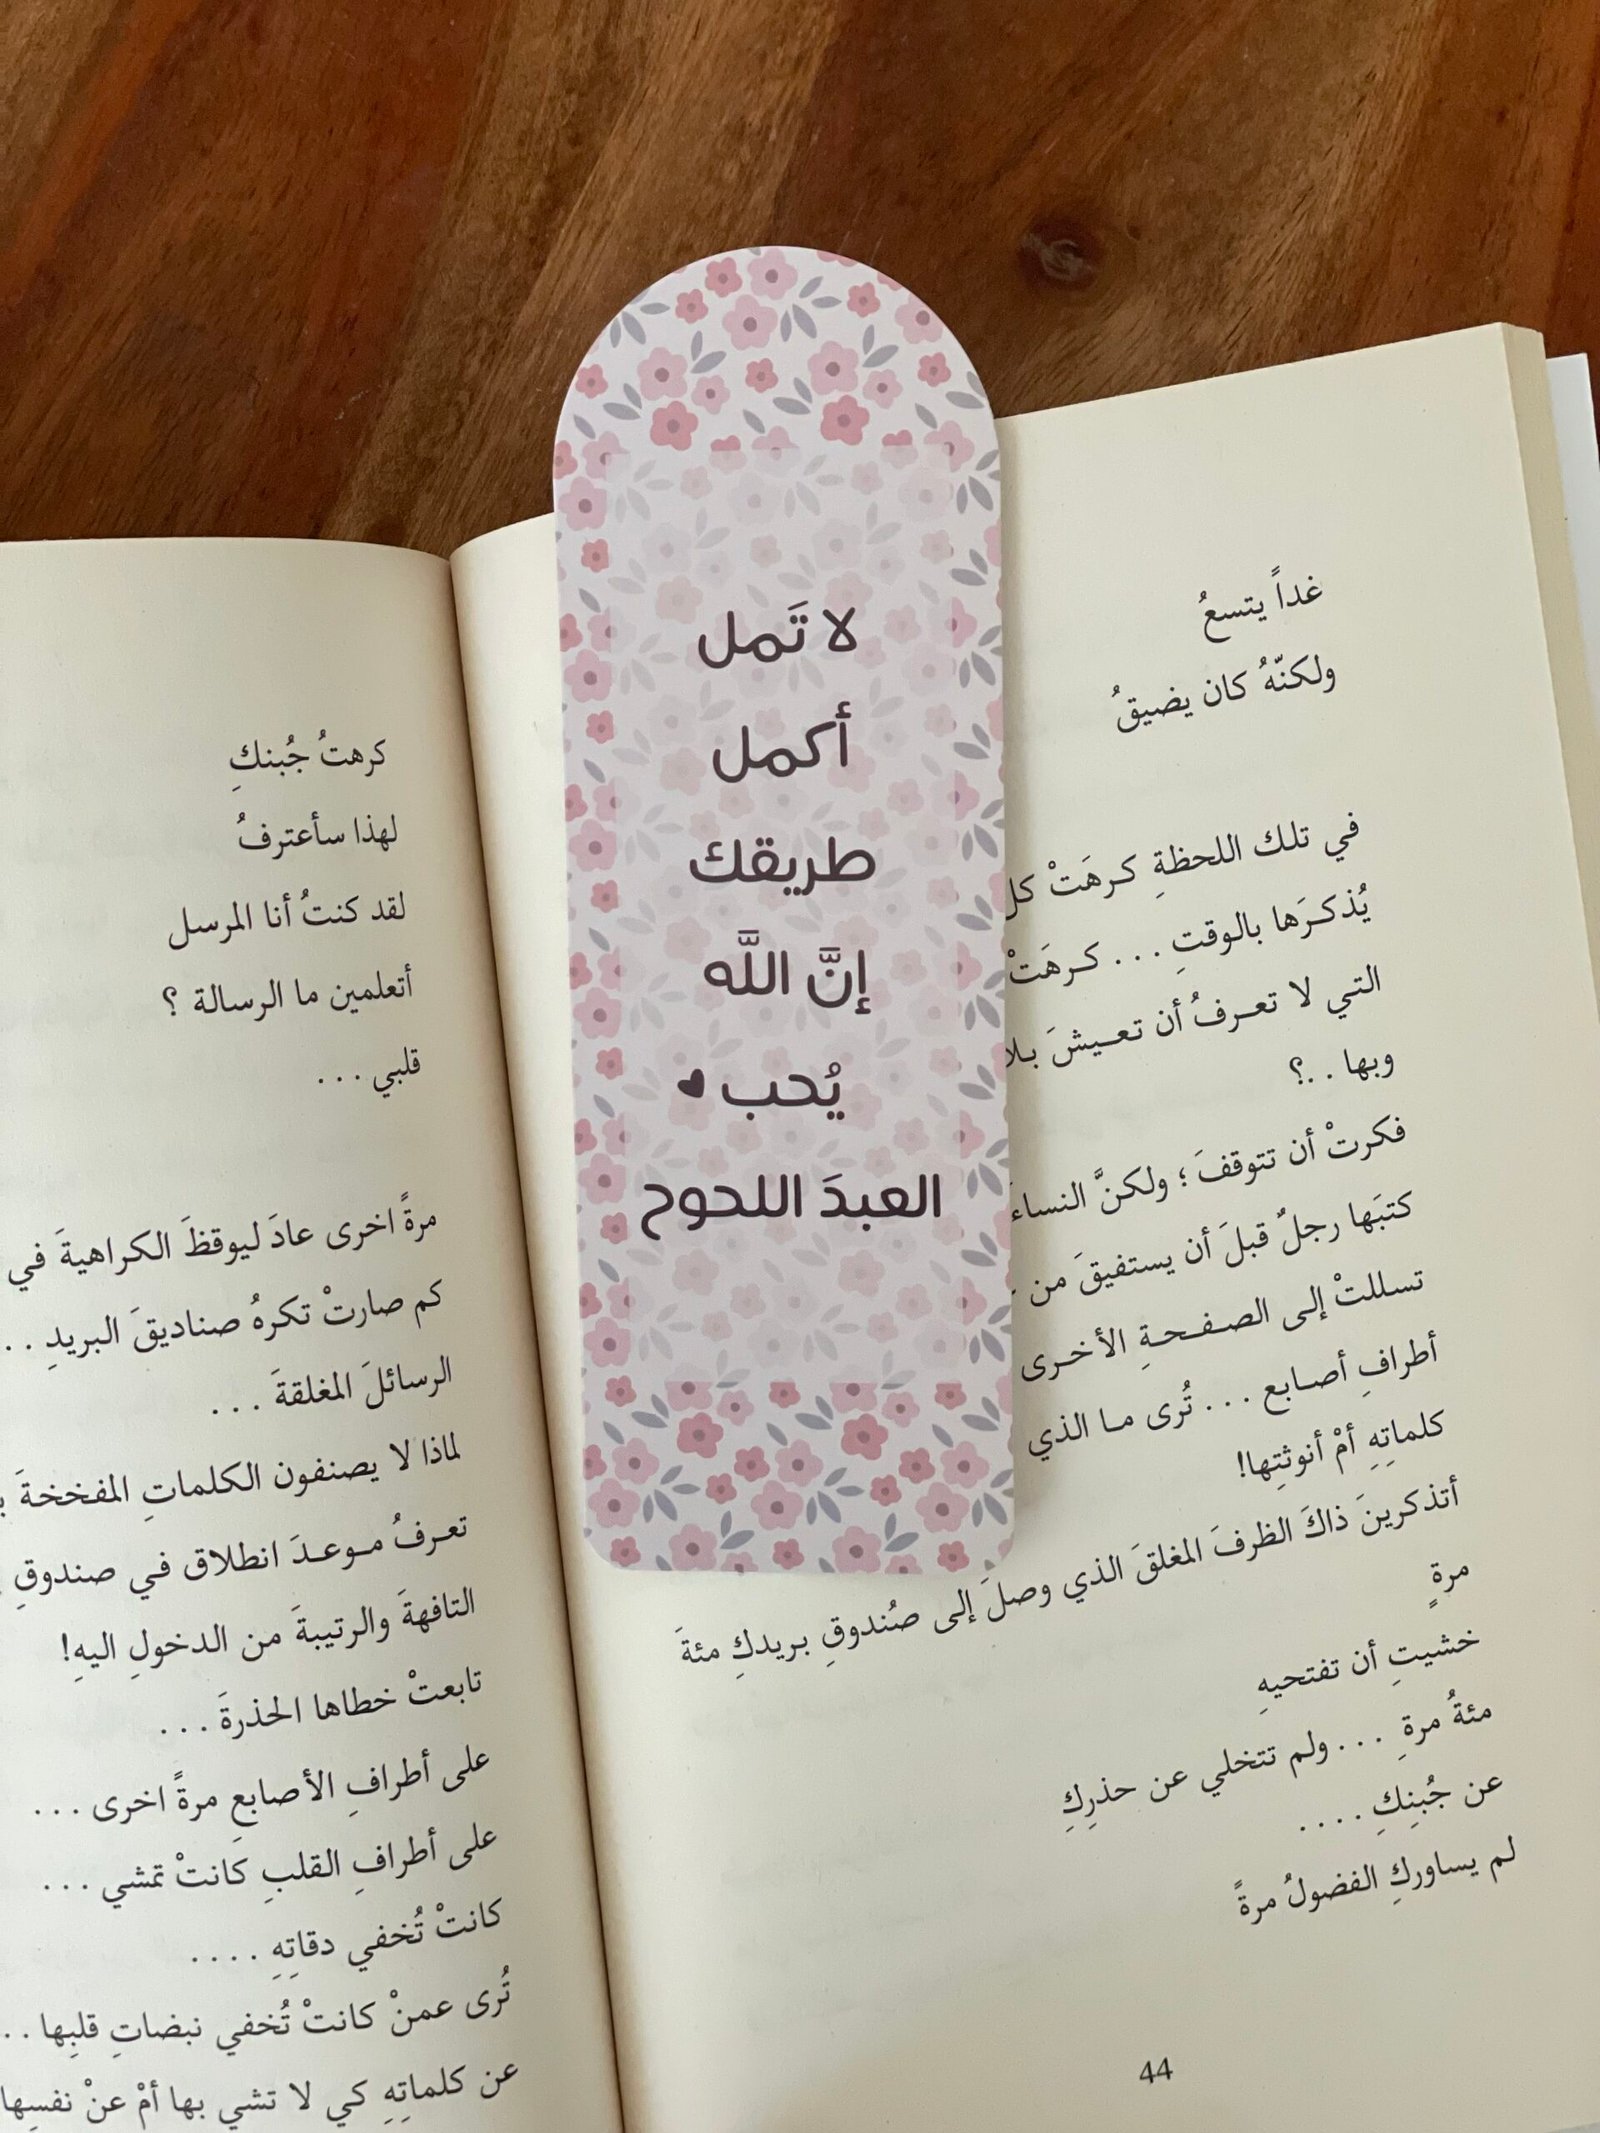 لا تَمل
أكمل
طريقك
إنَّ اللَّه
يُحب
العبدَ اللحوح
غداً يتسعُ
ولكنّهُ كان يضيقُ
في تلك اللحظةِ كرهَتْ كل
يُذكرَها بالوقتِ . . . كرهَتْ
التي لا تعرفُ أن تعيشَ بلا
وبها . .؟
فكرتْ أن تتوقفَ ؛ ولكنَّ النساءَ
كتبَها رجلٌ قبلَ أن يستفيقَ من
تسللتْ إلى الصفحةِ الأخرى
أطرافِ أصابع . . . تُرى ما الذي
كلماتِهِ أمْ أنوثتِها!
أتذكرينَ ذاكَ الظرفَ المغلقَ الذي وصلَ إلى صُندوقِ بريدكِ مئةَ
مرةٍ
خشيتِ أن تفتحيهِ
مئةُ مرةِ . . . ولم تتخلي عن حذرِكِ
عن جُبنِكِ . . . .
لم يساوركِ الفضولُ مرةً
44
كرهتُ جُبنكِ
لهذا سأعترفُ
لقد كنتُ أنا المرسل
أتعلمين ما الرسالة ؟
قلبي . . .
مرةً اخرى عادَ ليوقظَ الكراهيةَ في
كم صارتْ تكرهُ صناديقَ البريدِ . .
الرسائلَ المغلقةَ . . .
لماذا لا يصنفون الكلماتِ المفخخةَ
تعرفُ موعدَ انطلاق في صندوقِ
التافهةَ والرتيبةَ من الدخولِ اليهِ!
تابعتْ خطاها الحذرةَ . . .
على أطرافِ الأصابعِ مرةً اخرى . . .
على أطرافِ القلبِ كانتْ تمشي . . .
كانتْ تُخفي دقاتِهِ . . . .
تُرى عمنْ كانتْ تُخفي نبضاتِ قلبِها . .
عن كلماتِهِ كي لا تشي بها أمْ عنْ نفسِها